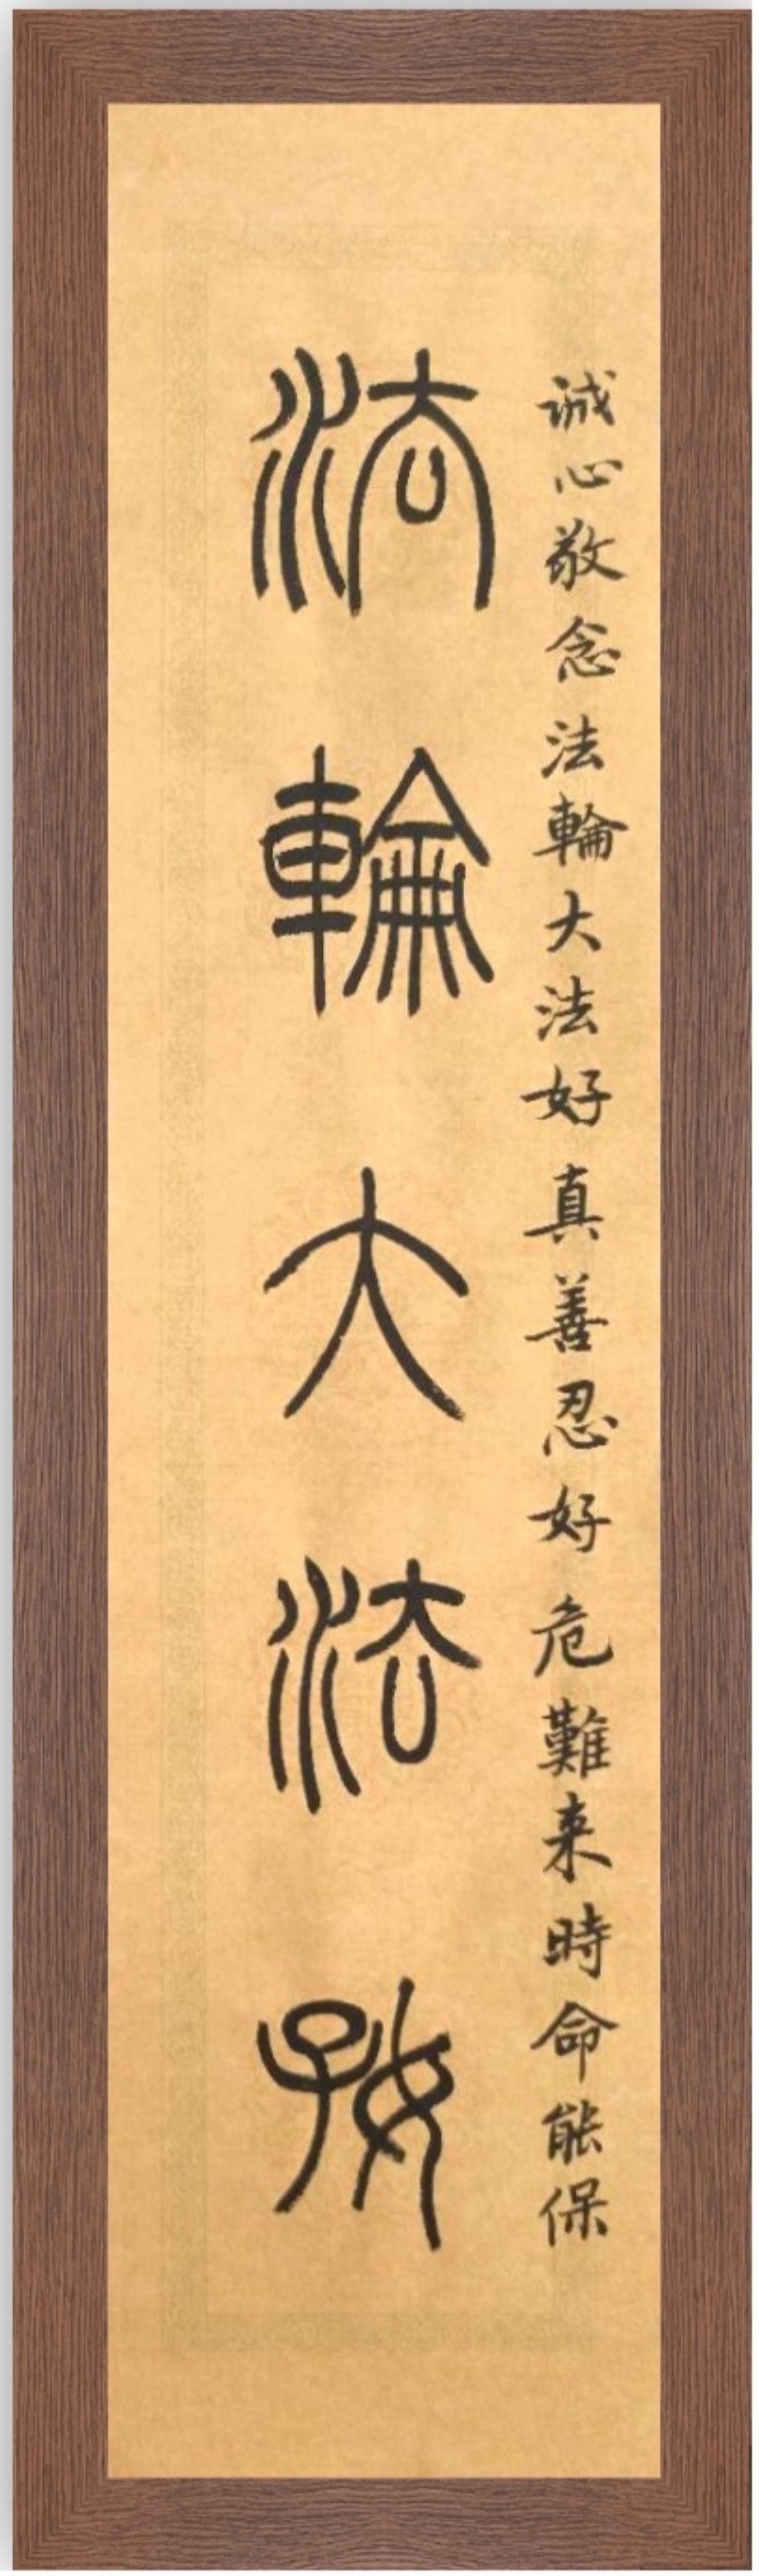 诚心敬念法輪大法好真善忍好危難来時命能保
法輪大法好